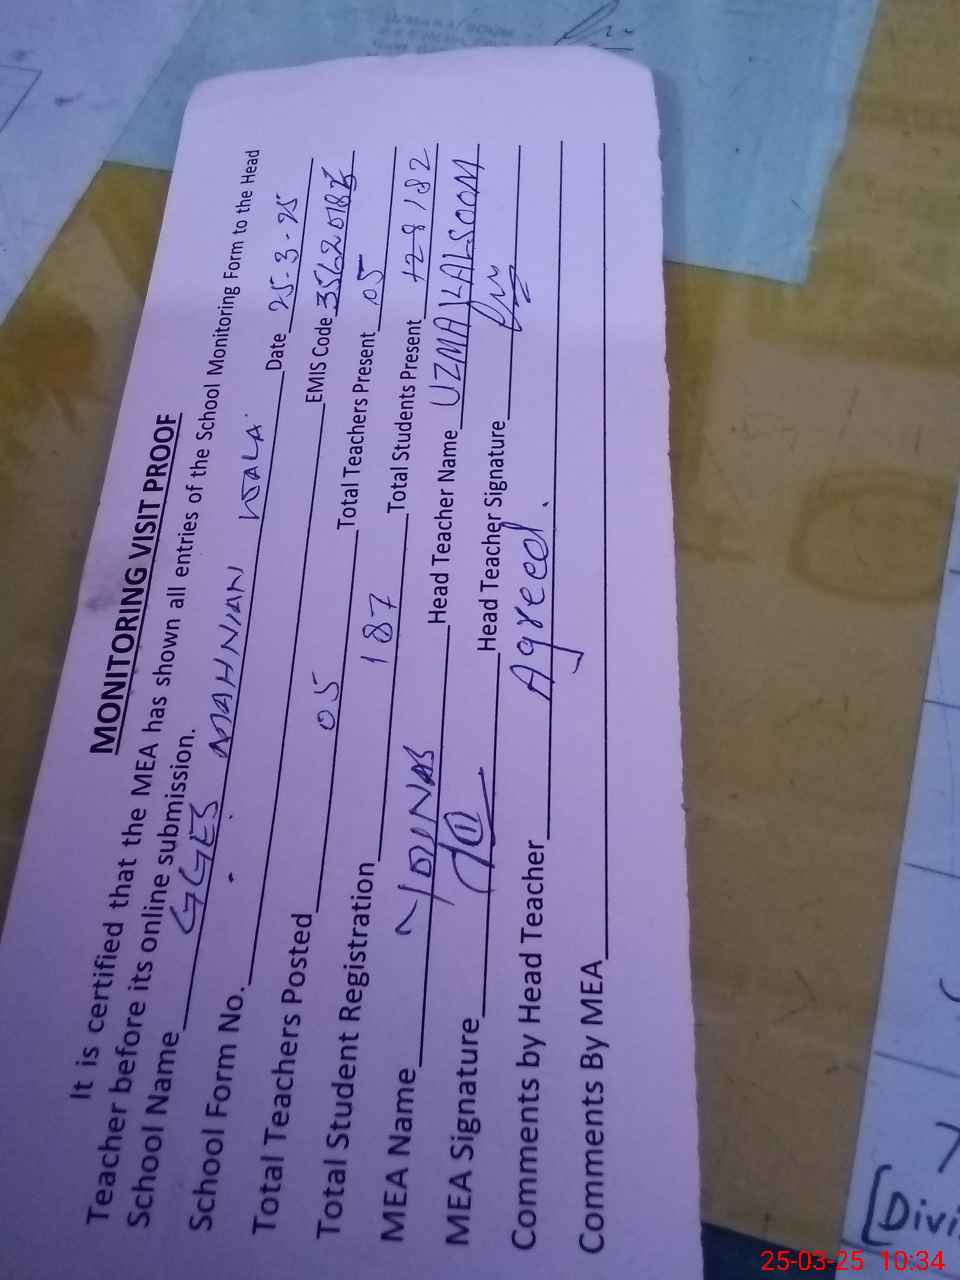 MONITORING VISIT PROOF
It is certified that the MEA has shown all entries of the School Monitoring Form to the Head
Teacher before its online submission.
School Name GGES MAHNIAN WALA Date 25-3-25
School Form No. EMIS Code
Total Teachers Posted 05 Total Teachers Present 05
Total Student Registration 187 Total Students Present 128 182
MEA Name YOUNAS Head Teacher Name UZMA KALSOOM
MEA Signature Head Teacher Signature
Comments by Head Teacher Agreed.
Comments By MEA
[Divi
25-03-25 10:34